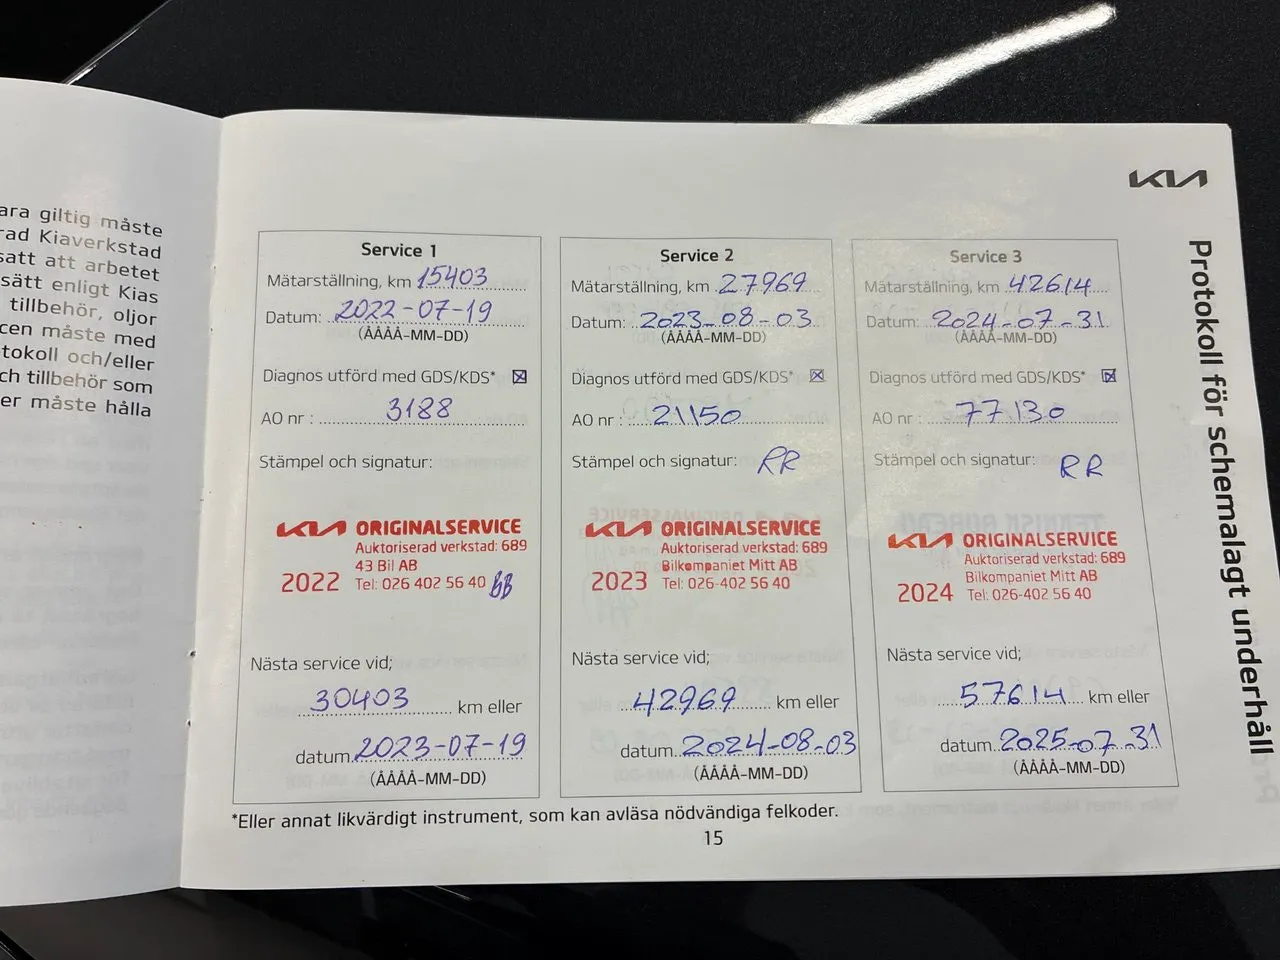 ara giltig måste
rad Kiaverkstad
satt att arbetet
sätt enligt Kias
tillbehör, oljor
cen måste med
tokoll och/eller
ch tillbehör som
er måste hålla
KIA
Protokoll för schemalagt underhåll
Service 1
Mätarställning, km 15403
Datum: 2022-07-19
(ÅÅÅÅ-MM-DD)
Diagnos utförd med GDS/KDS* ☒
AO nr : 3188
Stämpel och signatur:
KIA ORIGINALSERVICE
Auktoriserad verkstad: 689
43 Bil AB
2022 Tel: 026 402 56 40 BB
Nästa service vid;
30403 km eller
datum 2023-07-19
(ÅÅÅÅ-MM-DD)
Service 2
Mätarställning, km 27969
Datum: 2023-08-03
(ÅÅÅÅ-MM-DD)
Diagnos utförd med GDS/KDS* ☒
AO nr : 21150
Stämpel och signatur: RR
KIA ORIGINALSERVICE
Auktoriserad verkstad: 689
Bilkompaniet Mitt AB
2023 Tel: 026-402 56 40
Nästa service vid;
42969 km eller
datum 2024-08-03
(ÅÅÅÅ-MM-DD)
Service 3
Mätarställning, km 42614
Datum: 2024-07-31
(ÅÅÅÅ-MM-DD)
Diagnos utförd med GDS/KDS* ☒
AO nr : 77130
Stämpel och signatur: RR
KIA ORIGINALSERVICE
Auktoriserad verkstad: 689
Bilkompaniet Mitt AB
2024 Tel: 026-402 56 40
Nästa service vid;
57614 km eller
datum 2025-07-31
(ÅÅÅÅ-MM-DD)
*Eller annat likvärdigt instrument, som kan avläsa nödvändiga felkoder.
15